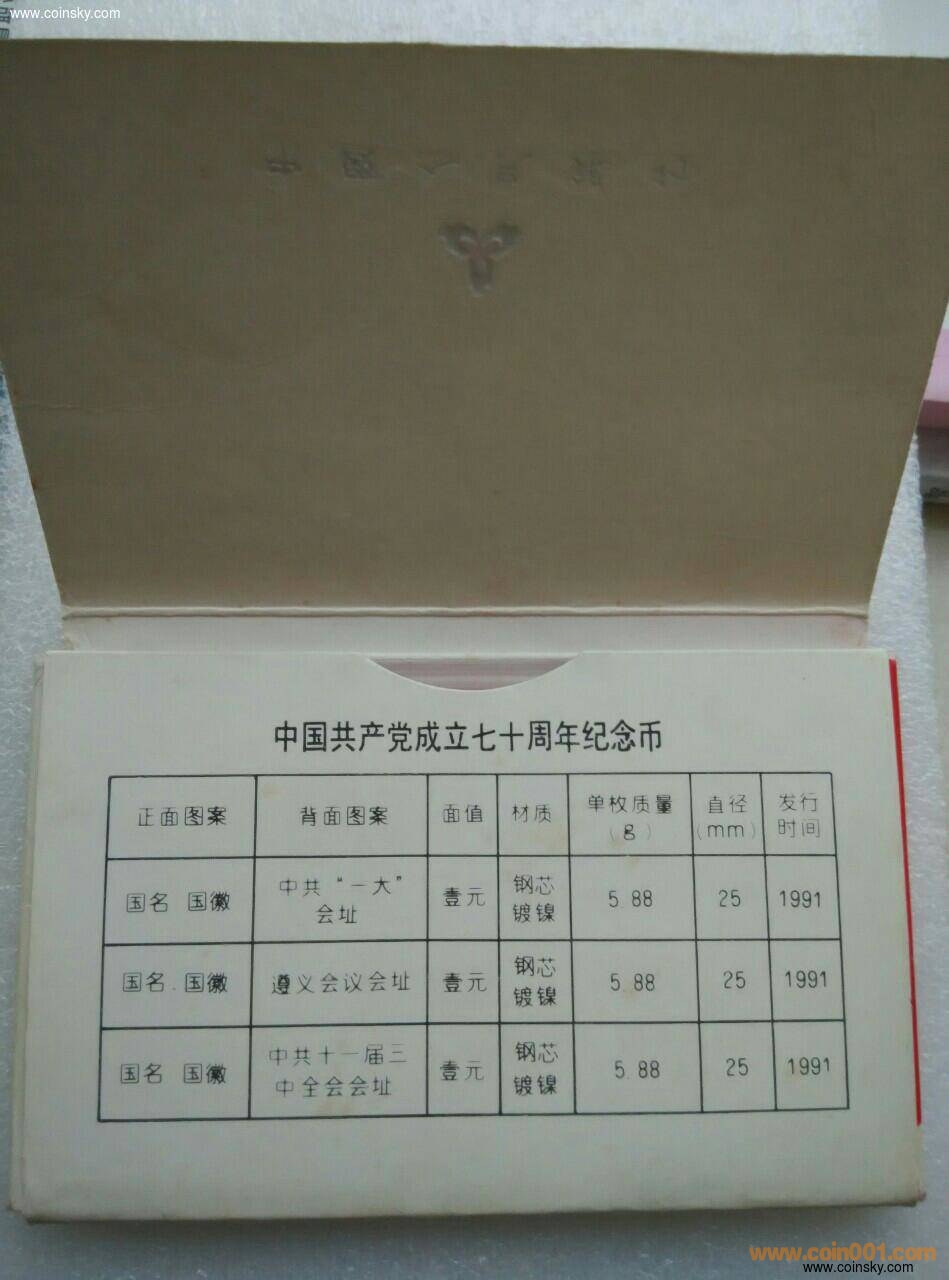 www.coinsky.com
中国人民银行
中国共产党成立七十周年纪念币
正面图案 背面图案 面值 材质 单枚质量(g) 直径(mm) 发行时间
国名 国徽 中共“一大”会址 壹元 钢芯镀镍 5.88 25 1991
国名 国徽 遵义会议会址 壹元 钢芯镀镍 5.88 25 1991
国名 国徽 中共十一届三中全会会址 壹元 钢芯镀镍 5.88 25 1991
www.coin001.com
www.coinsky.com